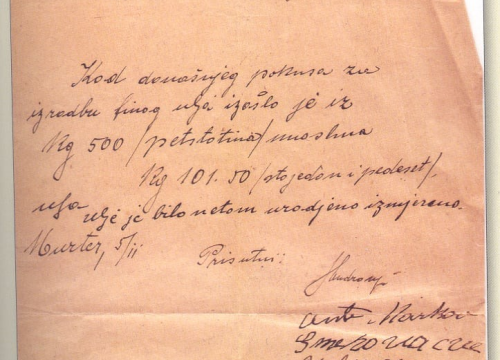 Kod današnjeg pokusa za
izradbu finog ulja izašlo je iz
Kg 500 /petstotina/ maslina
Kg 101.50 /stojedan i pedeset/,
ulja ulje je bilo netom urodjeno izmjereno.
Murter, 5/II
Prisutni:
Ante Markov